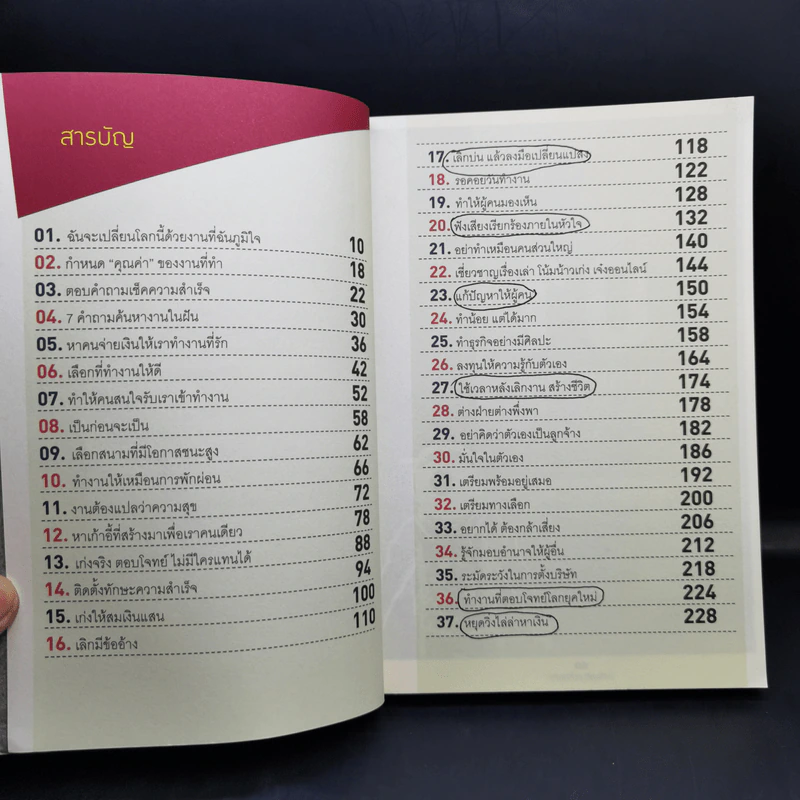 สารบัญ
01. ฉันจะเปลี่ยนโลกนี้ด้วยงานที่ฉันภูมิใจ 10
02. กำหนด “คุณค่า” ของงานที่ทำ 18
03. ตอบคำถามเช็คความสำเร็จ 22
04. 7 คำถามค้นหางานในฝัน 30
05. หาคนจ่ายเงินให้เราทำงานที่รัก 36
06. เลือกที่ทำงานให้ดี 42
07. ทำให้คนสนใจรับเราเข้าทำงาน 52
08. เป็นก่อนจะเป็น 58
09. เลือกสนามที่มีโอกาสชนะสูง 62
10. ทำงานให้เหมือนการพักผ่อน 66
11. งานต้องแปลว่าความสุข 72
12. หาเก้าอี้ที่สร้างมาเพื่อเราคนเดียว 78
13. เก่งจริง ตอบโจทย์ ไม่มีใครแทนได้ 88
14. ติดตั้งทักษะความสำเร็จ 94
15. เก่งให้สมเงินแสน 100
16. เลิกมีข้ออ้าง 110
17. เลิกบ่น แล้วลงมือเปลี่ยนแปลง 118
18. รอคอยวันทำงาน 122
19. ทำให้ผู้คนมองเห็น 128
20. ฟังเสียงเรียกร้องภายในหัวใจ 132
21. อย่าทำเหมือนคนส่วนใหญ่ 140
22. เชี่ยวชาญเรื่องเล่า โน้มน้าวเก่ง เจ๋งออนไลน์ 144
23. แก้ปัญหาให้ผู้คน 150
24. ทำน้อย แต่ได้มาก 154
25. ทำธุรกิจอย่างมีศิลปะ 158
26. ลงทุนให้ความรู้กับตัวเอง 164
27. ใช้เวลาหลังเลิกงาน สร้างชีวิต 174
28. ต่างฝ่ายต่างพึ่งพา 178
29. อย่าคิดว่าตัวเองเป็นลูกจ้าง 182
30. มั่นใจในตัวเอง 186
31. เตรียมพร้อมอยู่เสมอ 192
32. เตรียมทางเลือก 200
33. อยากได้ ต้องกล้าเสี่ยง 206
34. รู้จักมอบอำนาจให้ผู้อื่น 212
35. ระมัดระวังในการตั้งบริษัท 218
36. ทำงานที่ตอบโจทย์โลกยุคใหม่ 224
37. หยุดวิ่งไล่ล่าหาเงิน 228